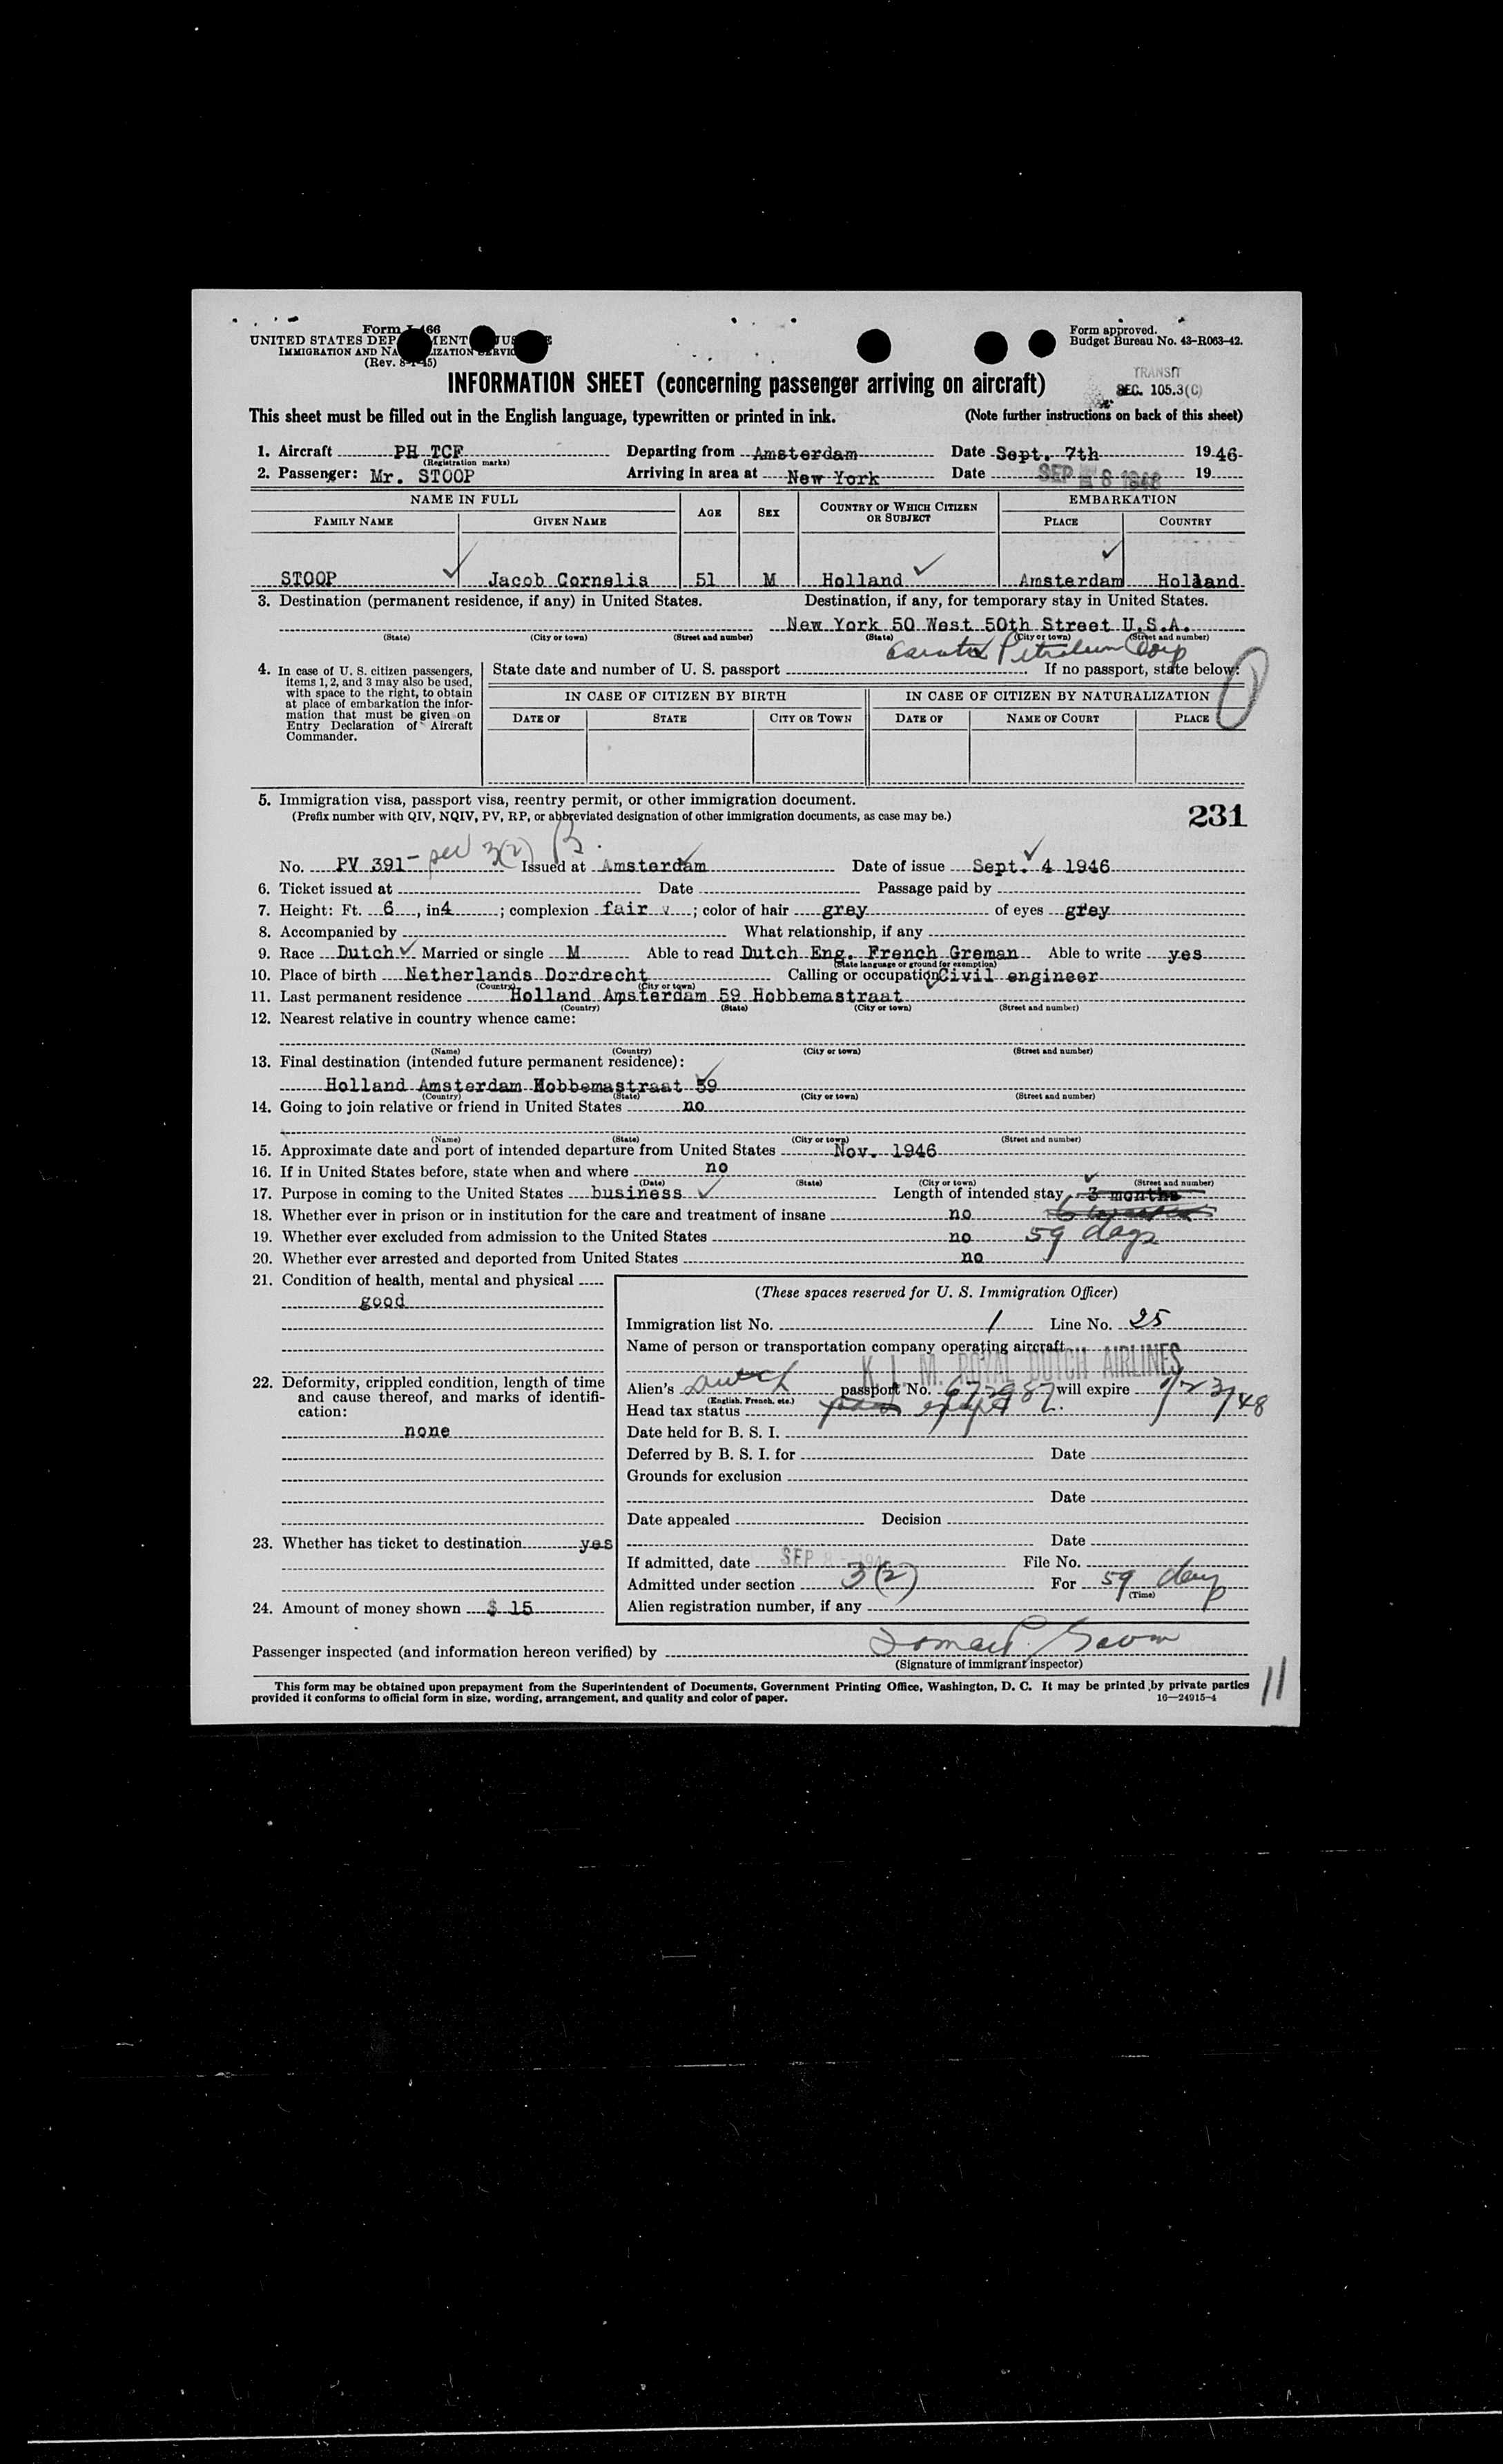 Form I-466
UNITED STATES DEPARTMENT OF JUSTICE
IMMIGRATION AND NATURALIZATION SERVICE
(Rev. 8-1-45)
Form approved.
Budget Bureau No. 43-R063-42.
TRANSIT
SEC. 105.3(C)
INFORMATION SHEET (concerning passenger arriving on aircraft)
This sheet must be filled out in the English language, typewritten or printed in ink. (Note further instructions on back of this sheet)
1. Aircraft PH TCF Departing from Amsterdam Date Sept. 7th 1946
(Registration marks)
2. Passenger: Mr. STOOP Arriving in area at New York Date SEP 8 1946 19
NAME IN FULL AGE SEX COUNTRY OF WHICH CITIZEN OR SUBJECT EMBARKATION
FAMILY NAME GIVEN NAME PLACE COUNTRY
STOOP Jacob Cornelis 51 M Holland Amsterdam Holland
3. Destination (permanent residence, if any) in United States. Destination, if any, for temporary stay in United States.
New York 50 West 50th Street U.S.A.
(State) (City or town) (Street and number) (State) (City or town) (Street and number)
Petroleum Corp
4. In case of U. S. citizen passengers, items 1, 2, and 3 may also be used, with space to the right, to obtain at place of embarkation the information that must be given on Entry Declaration of Aircraft Commander.
State date and number of U. S. passport If no passport, state below:
IN CASE OF CITIZEN BY BIRTH IN CASE OF CITIZEN BY NATURALIZATION
DATE OF STATE CITY OR TOWN DATE OF NAME OF COURT PLACE
5. Immigration visa, passport visa, reentry permit, or other immigration document.
(Prefix number with QIV, NQIV, PV, RP, or abbreviated designation of other immigration documents, as case may be.)
231
No. PV 391 - sec 3(2) B. Issued at Amsterdam Date of issue Sept. 4 1946
6. Ticket issued at Date Passage paid by
7. Height: Ft. 6, in 4; complexion fair; color of hair grey of eyes grey
8. Accompanied by What relationship, if any
9. Race Dutch Married or single M Able to read Dutch Eng. French Greman Able to write yes
(State language or ground for exemption)
10. Place of birth Netherlands Dordrecht Calling or occupation Civil engineer
(Country) (City or town)
11. Last permanent residence Holland Amsterdam 59 Hobbemastraat
(Country) (State) (City or town) (Street and number)
12. Nearest relative in country whence came:
(Name) (Country) (City or town) (Street and number)
13. Final destination (intended future permanent residence):
Holland Amsterdam Hobbemastraat 59
(Country) (State) (City or town) (Street and number)
14. Going to join relative or friend in United States no
(Name) (State) (City or town) (Street and number)
15. Approximate date and port of intended departure from United States Nov. 1946
16. If in United States before, state when and where no
(Date) (State) (City or town) (Street and number)
17. Purpose in coming to the United States business Length of intended stay 3 months
18. Whether ever in prison or in institution for the care and treatment of insane no
19. Whether ever excluded from admission to the United States no 59 days
20. Whether ever arrested and deported from United States no
21. Condition of health, mental and physical
good
22. Deformity, crippled condition, length of time and cause thereof, and marks of identification:
none
23. Whether has ticket to destination yes
24. Amount of money shown $ 15
(These spaces reserved for U. S. Immigration Officer)
Immigration list No. 1 Line No. 25
Name of person or transportation company operating aircraft
K. L. M. ROYAL DUTCH AIRLINES
Alien's Dutch passport No. 672987 will expire 1/23/48
(English, French, etc.)
Head tax status exempt
Date held for B. S. I.
Deferred by B. S. I. for Date
Grounds for exclusion
Date
Date appealed Decision
Date
If admitted, date SEP 8 194 File No.
Admitted under section 3(2) For 59 days
(Time)
Alien registration number, if any
Passenger inspected (and information hereon verified) by
(Signature of immigrant inspector)
This form may be obtained upon prepayment from the Superintendent of Documents, Government Printing Office, Washington, D. C. It may be printed by private parties
provided it conforms to official form in size, wording, arrangement, and quality and color of paper. 16—24915-4
11